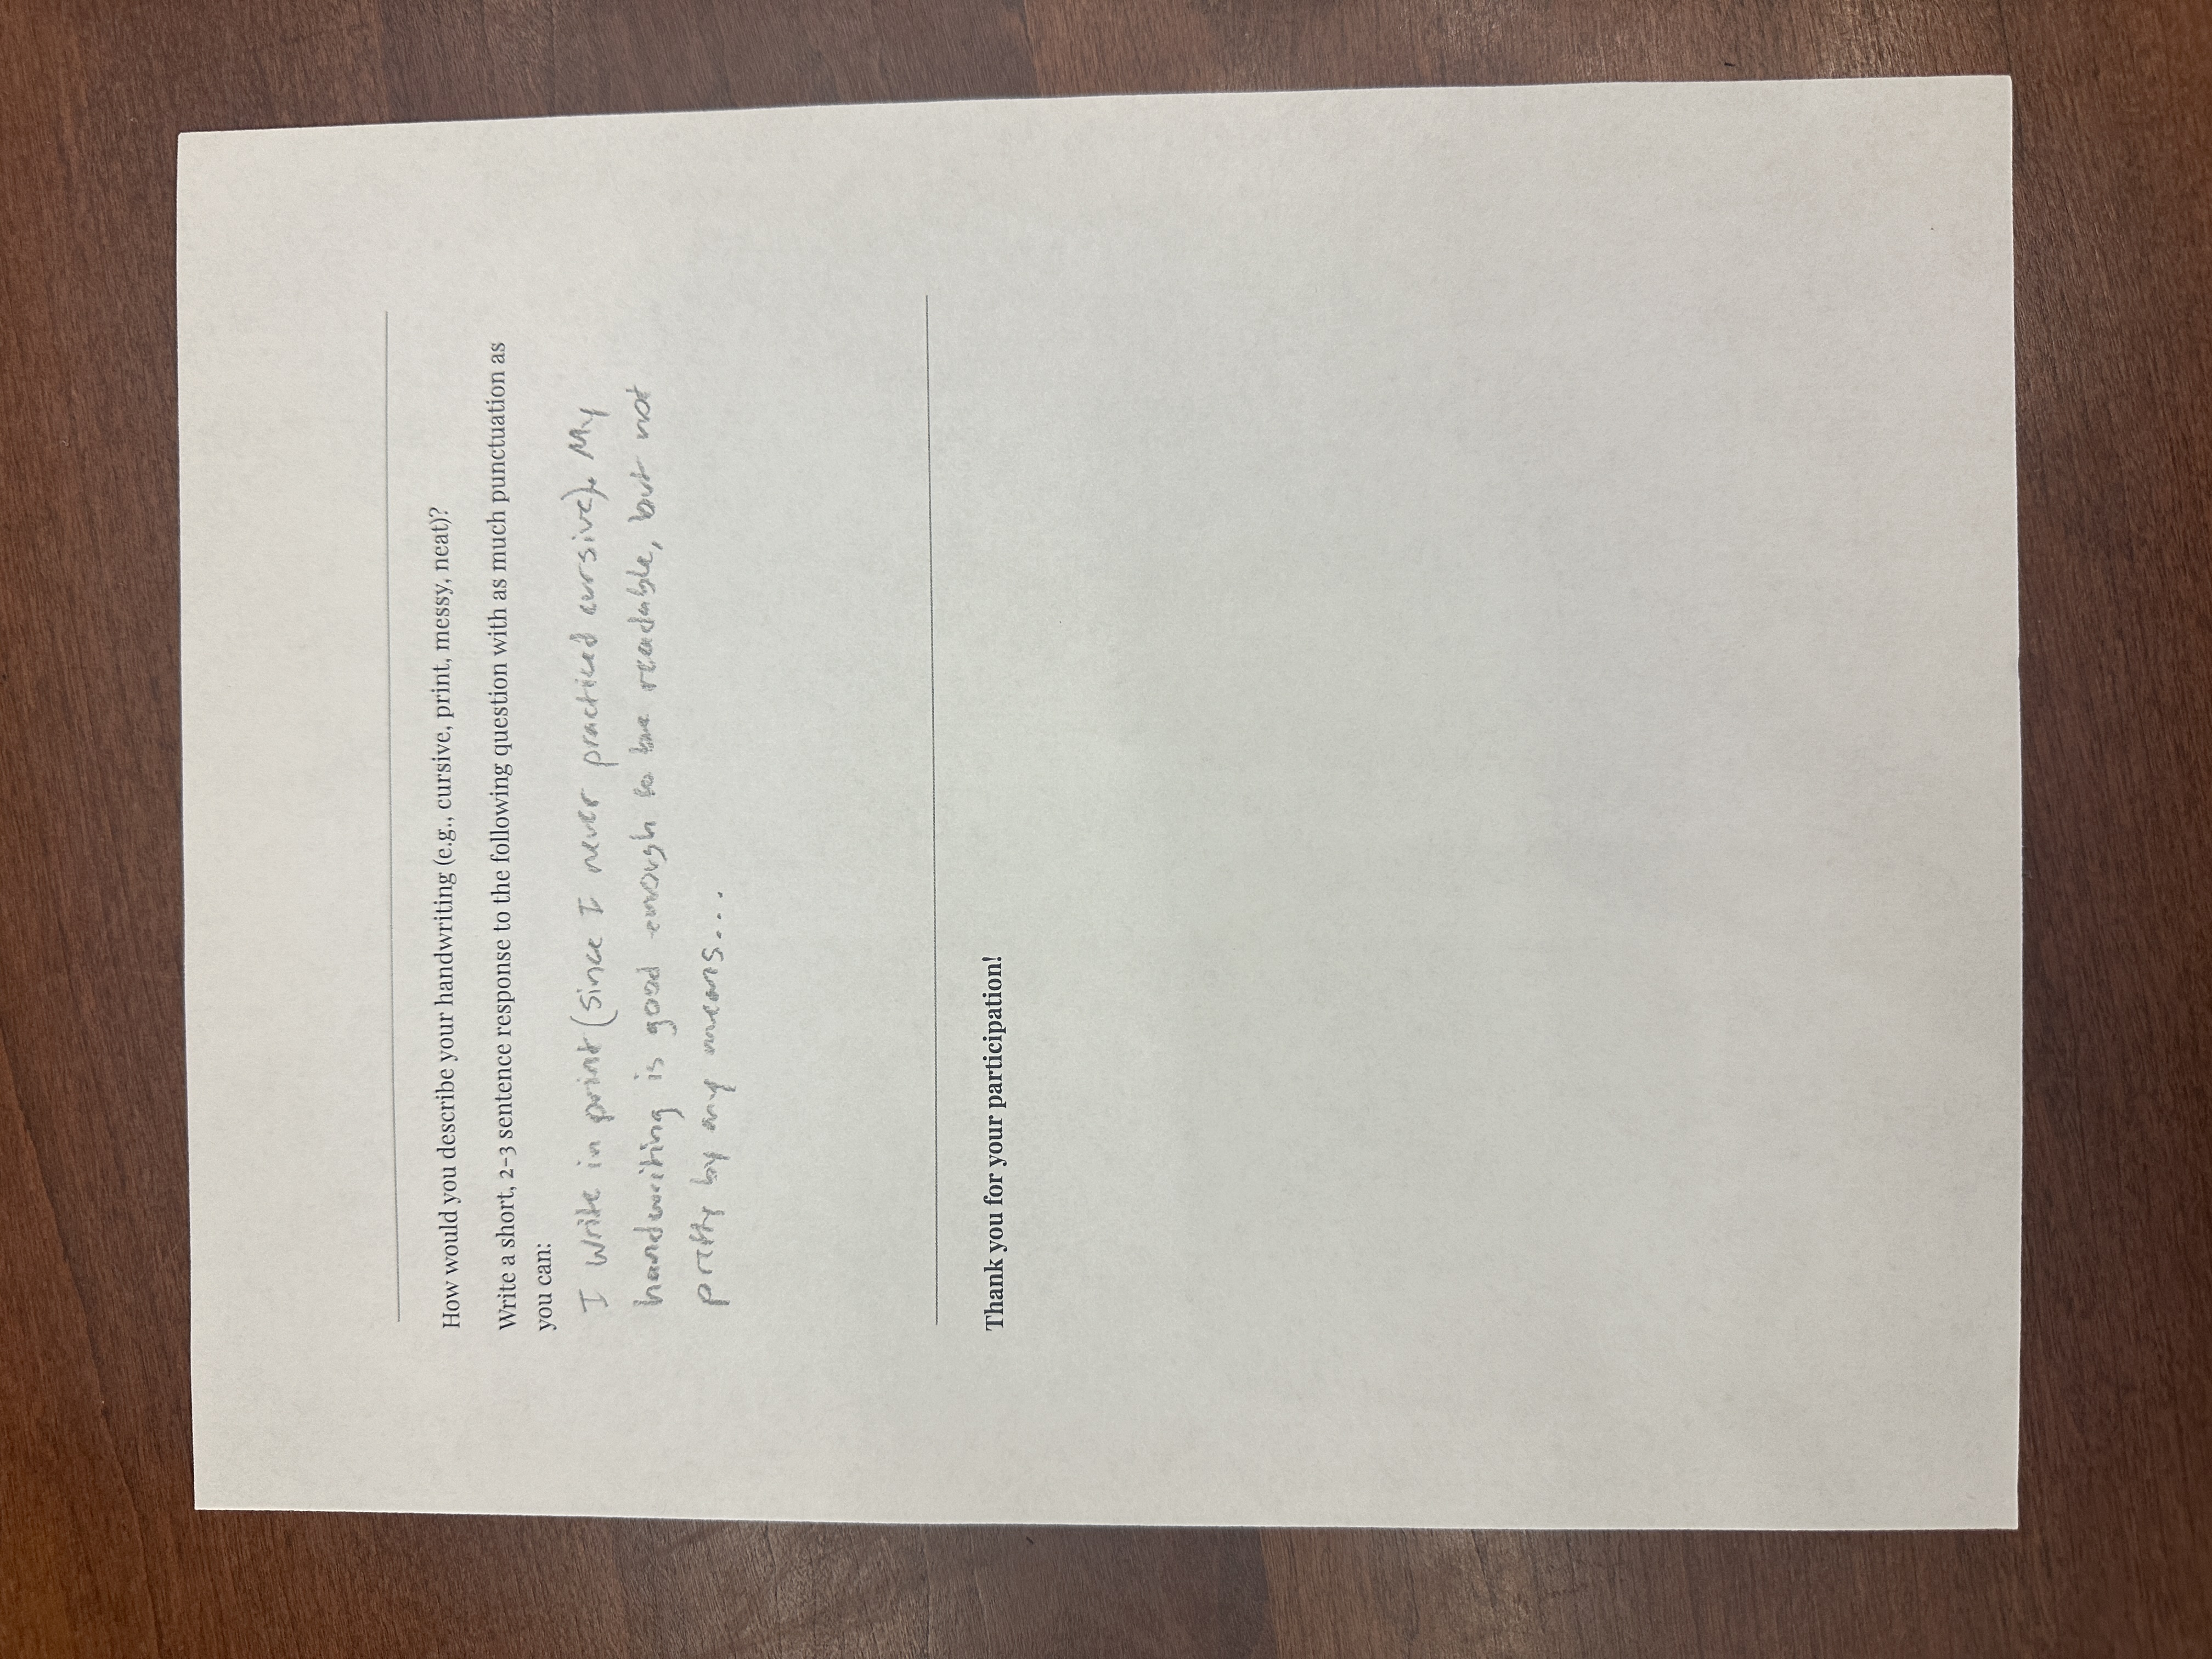 How would you describe your handwriting (e.g., cursive, print, messy, neat)?
Write a short, 2-3 sentence response to the following question with as much punctuation as
you can:
I write in print (since I never practiced cursive). My
handwriting is good enough to be readable, but not
pretty by any means...
Thank you for your participation!